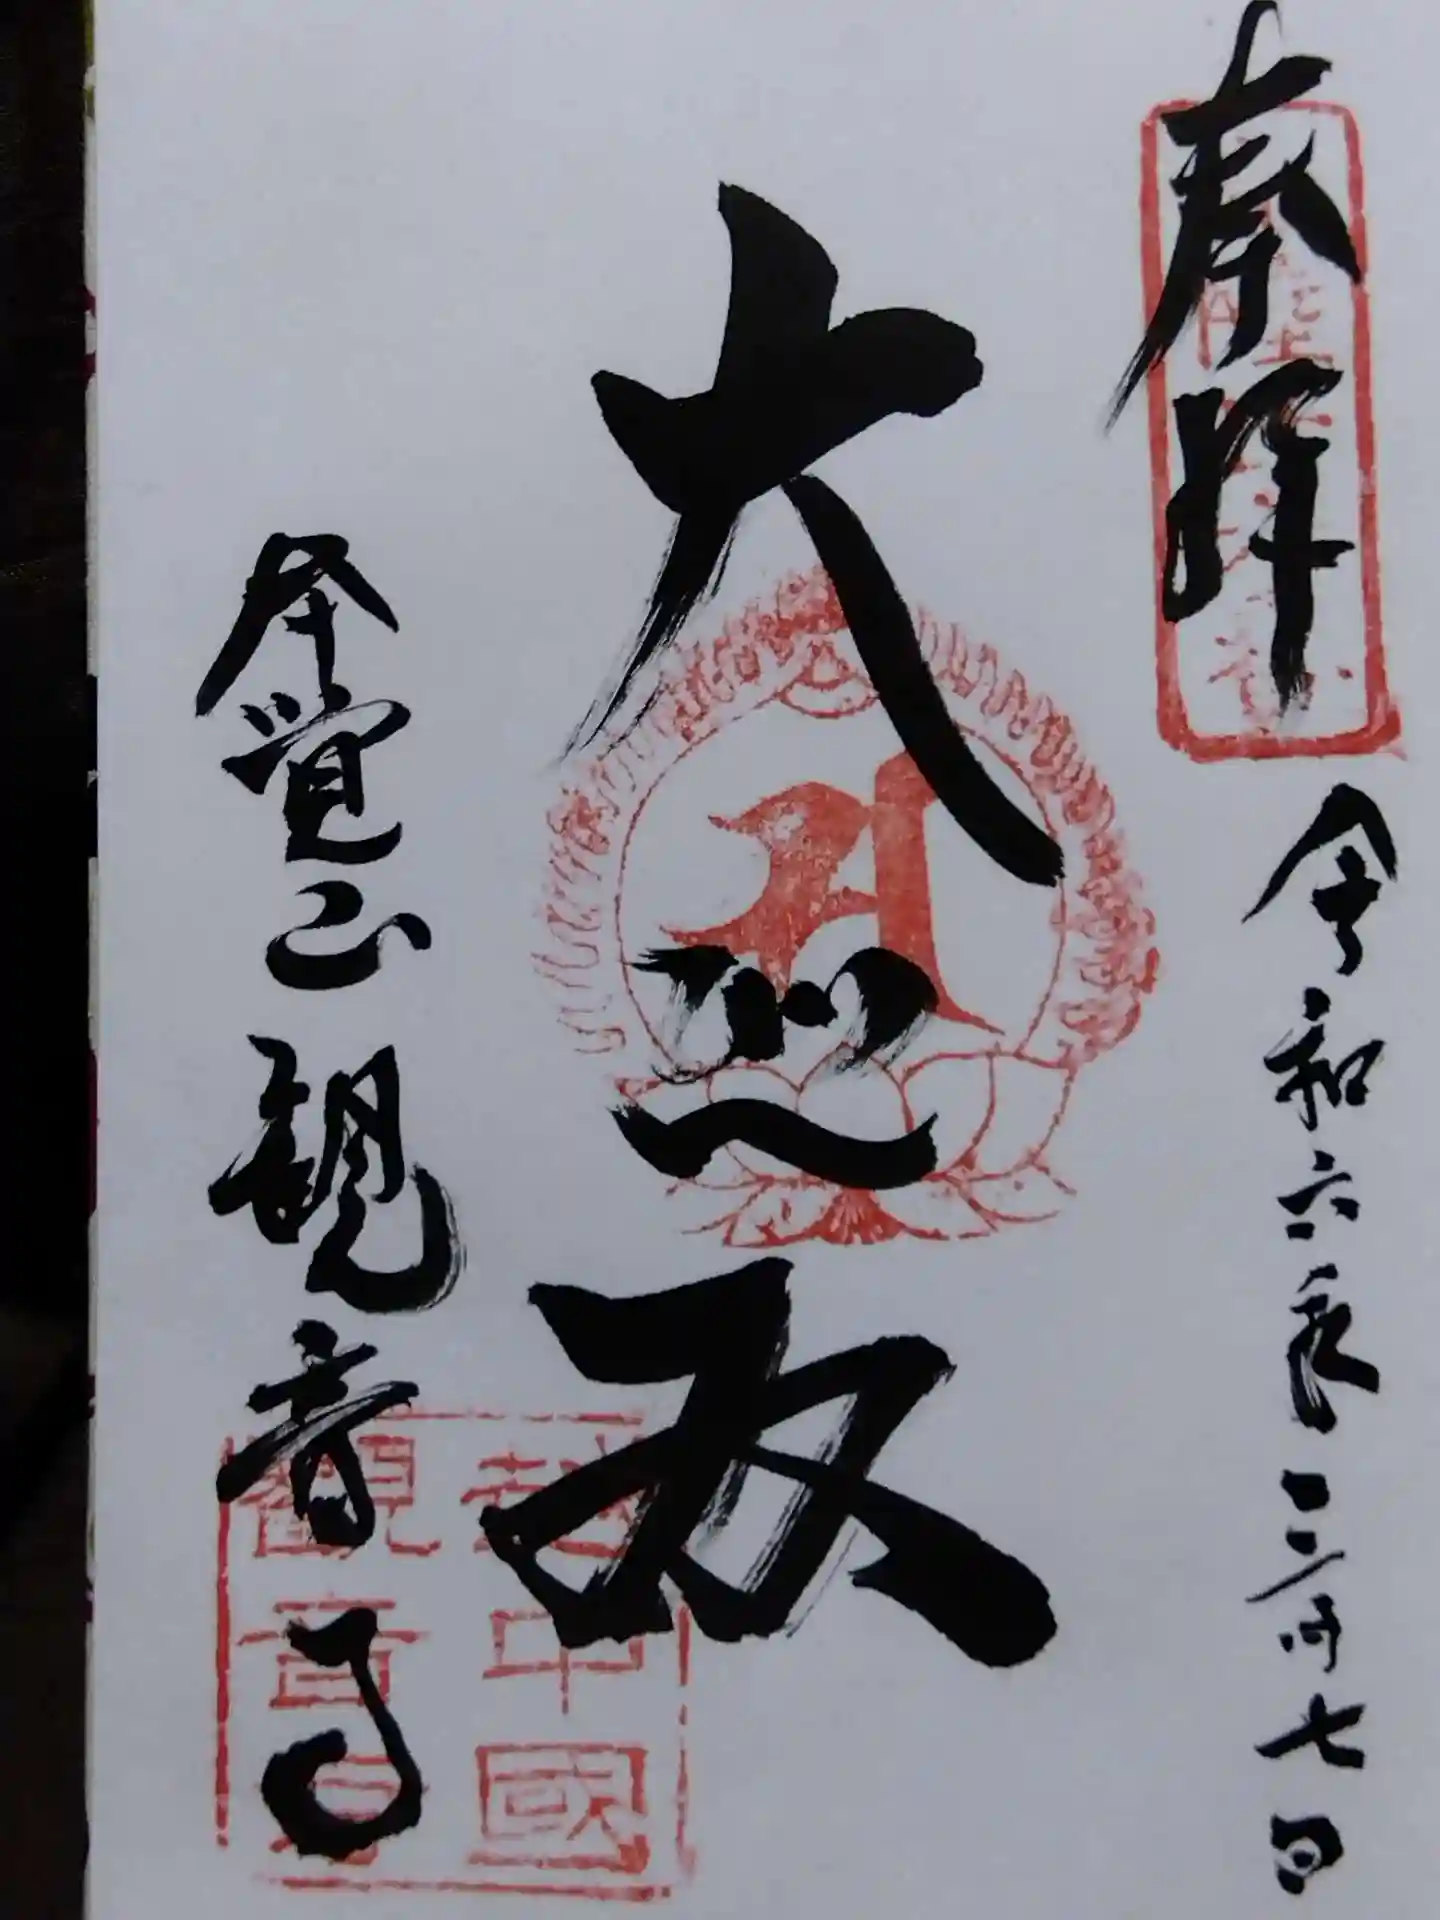 奉拝
令和六年一二月七日
大悲殿
本覚山観音寺
越中國
観音寺